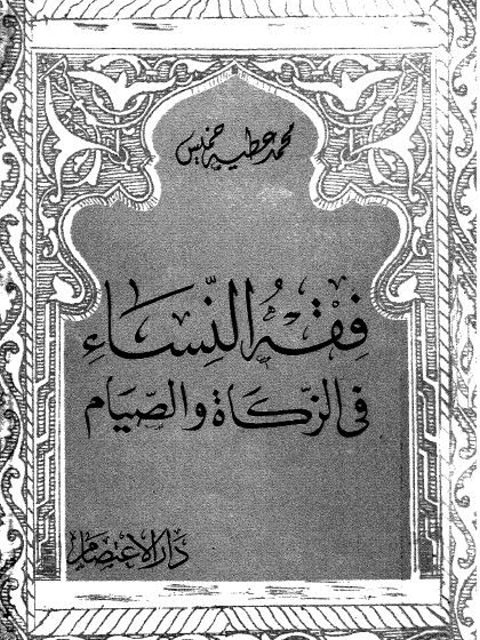 محمد عطيه خميس
فِقْهُ النِّسَاءِ
في الزّكاة والصّيام
دار الاعتصام